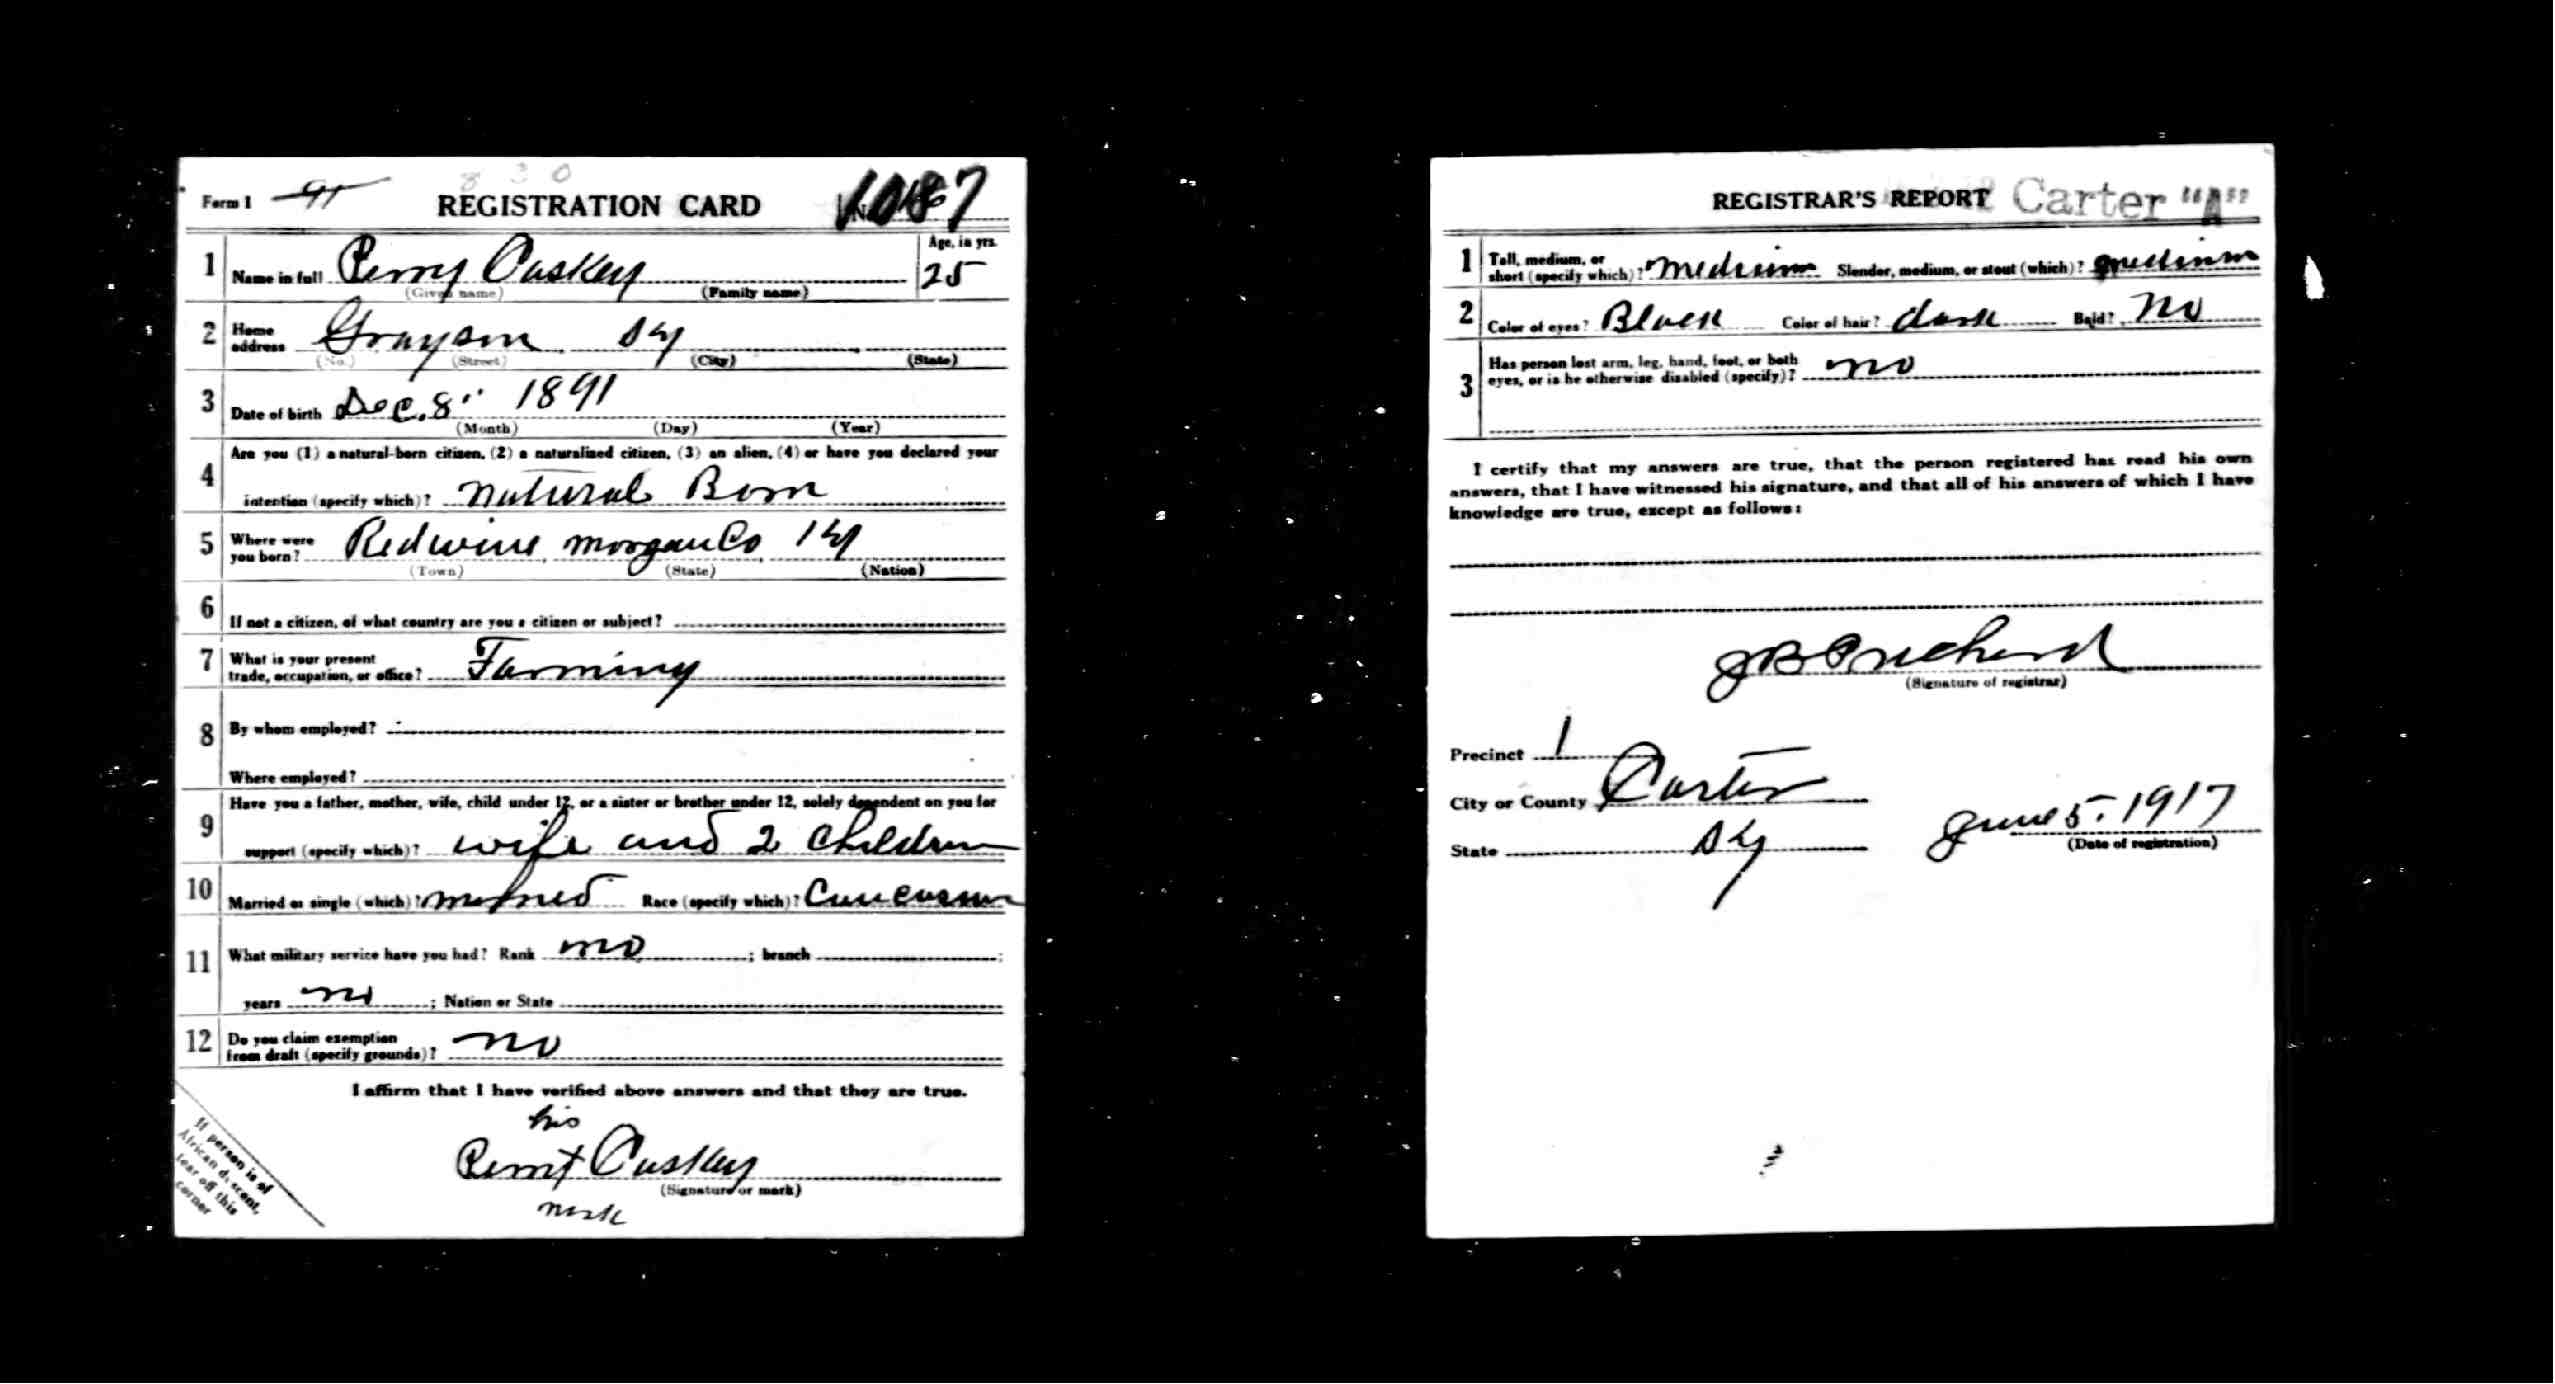 Form 1 91 830 REGISTRATION CARD 1087
1 Name in full Perry Caskey Age, in yrs.
(Given name) (Family name) 25
2 Home address Grayson Ky
(No.) (Street) (City) (State)
3 Date of birth Dec. 8" 1891
(Month) (Day) (Year)
4 Are you (1) a natural-born citizen, (2) a naturalized citizen, (3) an alien, (4) or have you declared your
intention (specify which)? Natural Born
5 Where were you born? Redwine Morgan Co Ky
(Town) (State) (Nation)
6 If not a citizen, of what country are you a citizen or subject?
7 What is your present
trade, occupation, or office? Farming
8 By whom employed?
Where employed?
9 Have you a father, mother, wife, child under 12, or a sister or brother under 12, solely dependent on you for
support (specify which)? wife and 2 children
10 Married or single (which)? married Race (specify which)? Caucasian
11 What military service have you had? Rank no ; branch ;
years no ; Nation or State
12 Do you claim exemption
from draft (specify grounds)? no
I affirm that I have verified above answers and that they are true.
his
Perry x Caskey
(Signature or mark)
mark
If person is of
African descent,
tear off this
corner
REGISTRAR'S REPORT Carter "A"
1 Tall, medium, or
short (specify which)? medium Slender, medium, or stout (which)? medium
2 Color of eyes? Black Color of hair? dark Bald? no
3 Has person lost arm, leg, hand, foot, or both
eyes, or is he otherwise disabled (specify)? no
I certify that my answers are true, that the person registered has read his own
answers, that I have witnessed his signature, and that all of his answers of which I have
knowledge are true, except as follows:
J B Prichard
(Signature of registrar)
Precinct 1
City or County Carter
State Ky June 5. 1917
(Date of registration)